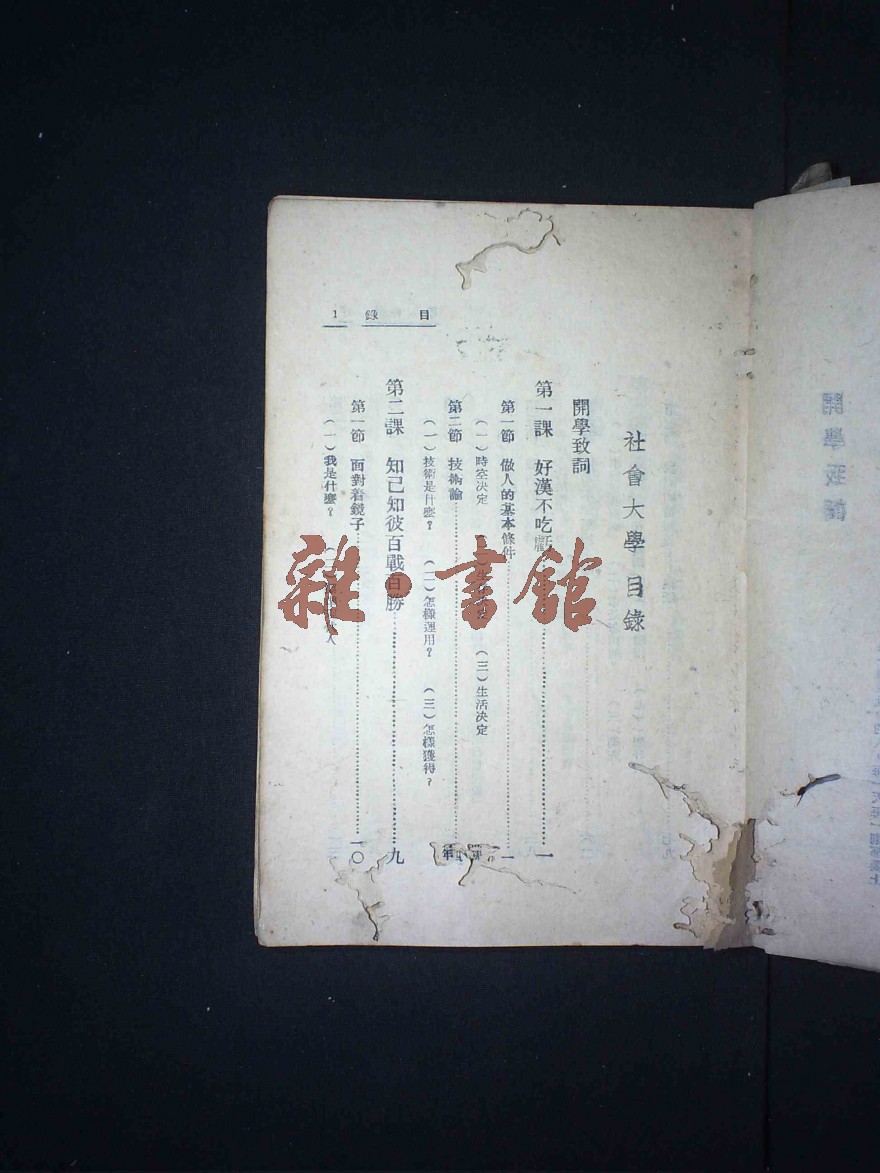 目錄 1
社會大學 目錄
開學致詞
第一課 好漢不吃虧……一
第一節 做人的基本條件……一
(一)時空決定 (三)生活決定
第二節 技術論……
(一)技術是什麼? (二)怎樣運用? (三)怎樣獲得?
第二課 知己知彼百戰百勝……九
第一節 面對着鏡子……一〇
(一)我是什麼? 人
雜·書館